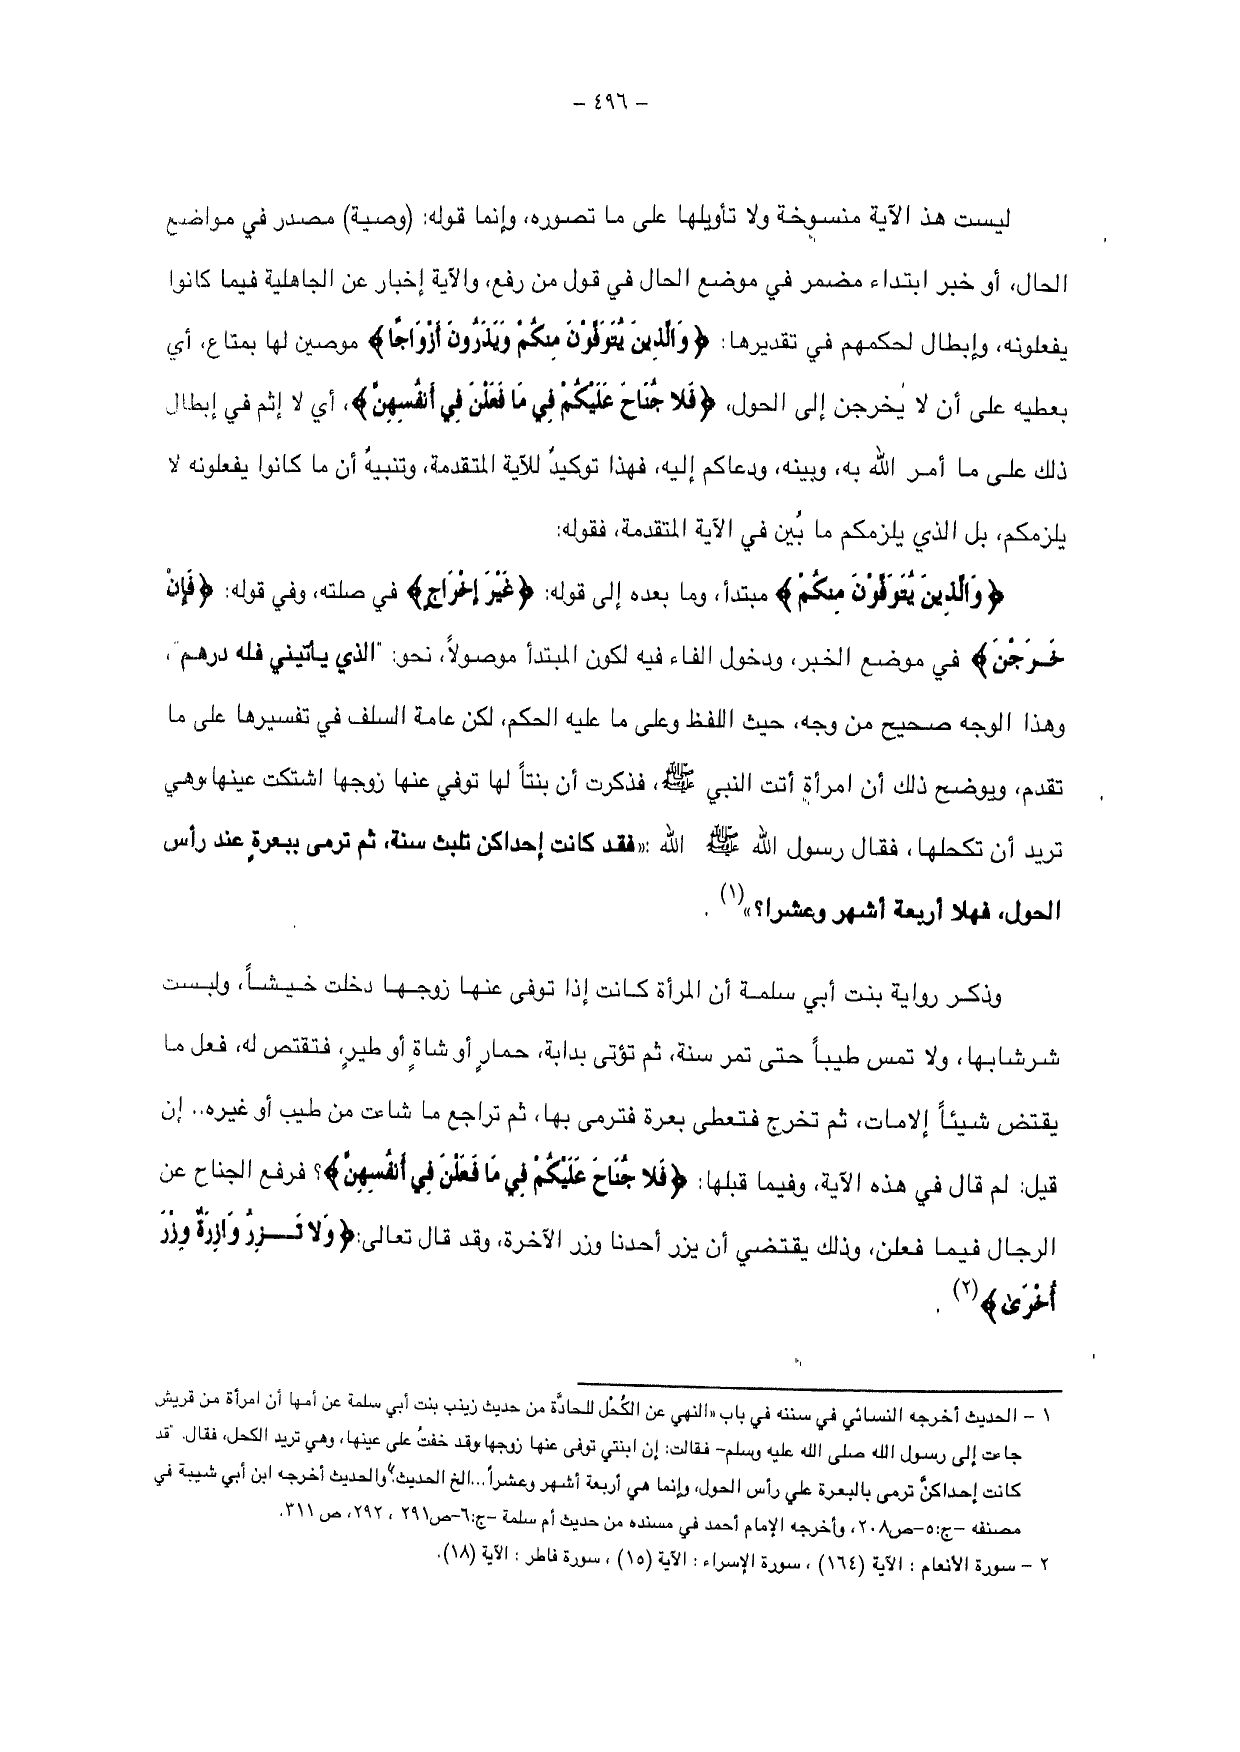 – ٤٩٦ –
ليست هذ الآية منسوخة ولا تأويلها على ما تصوره، وإنما قوله: (وصية) مصدر في مواضع
الحال، أو خبر ابتداء مضمر في موضع الحال في قول من رفع، والآية إخبار عن الجاهلية فيما كانوا
يفعلونه، وإبطال لحكمهم في تقديرها: ﴿وَالَّذِينَ يُتَوَفَّوْنَ مِنكُمْ وَيَذَرُونَ أَزْوَاجًا﴾ موصين لها بمتاع، أي
بعطيه على أن لا يُخرجن إلى الحول، ﴿فَلا جُنَاحَ عَلَيْكُمْ فِي مَا فَعَلْنَ فِي أَنفُسِهِنَّ﴾، أي لا إثم في إبطال
ذلك على ما أمر الله به، وبينه، ودعاكم إليه، فهذا توكيدٌ للآية المتقدمة، وتنبيهٌ أن ما كانوا يفعلونه لا
يلزمكم، بل الذي يلزمكم ما بُين في الآية المتقدمة، فقوله:
﴿وَالَّذِينَ يُتَوَفَّوْنَ مِنكُمْ﴾ مبتدأ، وما بعده إلى قوله: ﴿غَيْرَ إِخْرَاجٍ﴾ في صلته، وفي قوله: ﴿فَإِنْ
خَرَجْنَ﴾ في موضع الخبر، ودخول الفاء فيه لكون المبتدأ موصولاً، نحو: "الذي يأتيني فله درهم"،
وهذا الوجه صحيح من وجه، حيث اللفظ وعلى ما عليه الحكم، لكن عامة السلف في تفسيرها على ما
تقدم، ويوضح ذلك أن امرأة أتت النبي ﷺ، فذكرت أن بنتاً لها توفي عنها زوجها اشتكت عينها، وهي
تريد أن تكحلها، فقال رسول الله ﷺ الله :«فقد كانت إحداكن تلبث سنة، ثم ترمى ببعرةٍ عند رأس
الحول، فهلا أربعة أشهر وعشرا؟»(١) .
وذكر رواية بنت أبي سلمة أن المرأة كانت إذا توفى عنها زوجها دخلت خيشاً، ولبست
شرشابها، ولا تمس طيباً حتى تمر سنة، ثم تؤتى بدابة، حمارٍ أو شاةٍ أو طيرٍ، فتقتص له، فعل ما
يقتض شيئاً إلامات، ثم تخرج فتعطى بعرة فترمى بها، ثم تراجع ما شاءت من طيب أو غيره.. إن
قيل: لم قال في هذه الآية، وفيما قبلها: ﴿فَلا جُنَاحَ عَلَيْكُمْ فِي مَا فَعَلْنَ فِي أَنفُسِهِنَّ﴾؟ فرفع الجناح عن
الرجال فيما فعلن، وذلك يقتضي أن يزر أحدنا وزر الآخرة، وقد قال تعالى:﴿وَلا تَزِرُ وَازِرَةٌ وِزْرَ
أُخْرَىٰ﴾(٢) .
١ – الحديث أخرجه النسائي في سننه في باب «النهي عن الكُحْل للحادَّة من حديث زينب بنت أبي سلمة عن أمها أن امرأة من قريش
جاءت إلى رسول الله صلى الله عليه وسلم– فقالت: إن ابنتي توفى عنها زوجها وقد خفتُ على عينها، وهي تريد الكحل، فقال. "قد
كانت إحداكنَّ ترمى بالبعرة علي رأس الحول، وإنما هي أربعة أشهر وعشراً...الخ الحديث."والحديث أخرجه ابن أبي شيبة في
مصنفه –ج:٥–ص٢٠٨، وأخرجه الإمام أحمد في مسنده من حديث أم سلمة –ج:٦–ص٢٩١ ، ٢٩٢، ص ٣١١.
٢ – سورة الأنعام : الآية (١٦٤) ، سورة الإسراء : الآية (١٥) ، سورة فاطر : الآية (١٨).